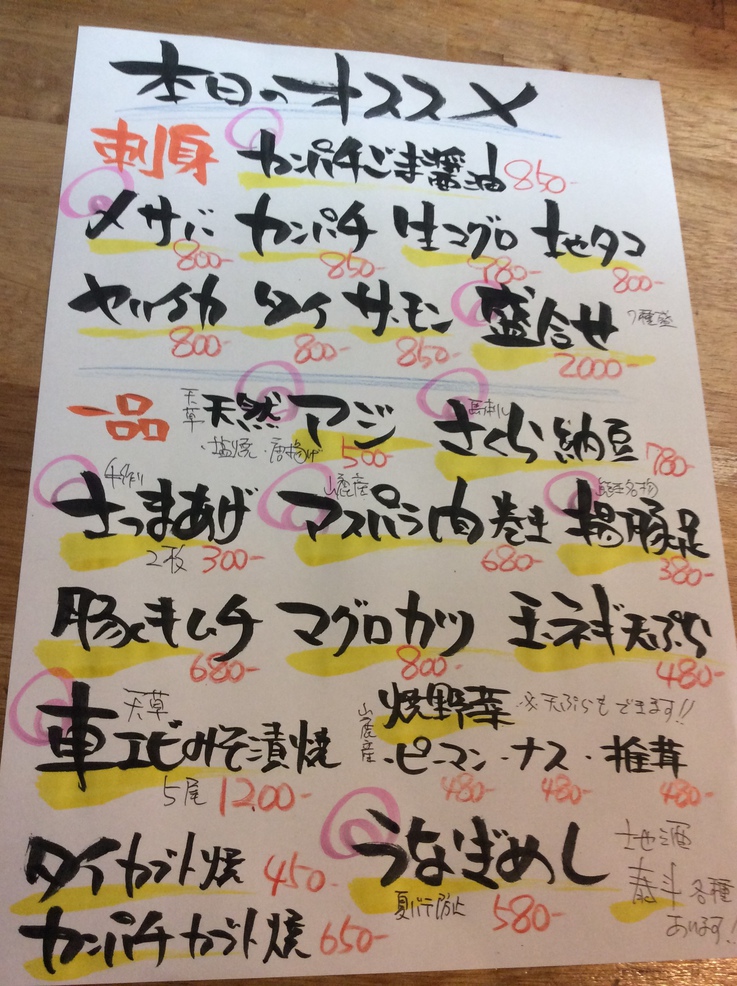 本日のオススメ
刺身 カンパチごま醤油 850-
メサバ 800- カンパチ 850- 生マグロ 780- 地タコ 800-
ヤリイカ 800- タイ 800- サーモン 850- 盛合せ 7種盛 2000-
一品 天草 天然アジ ・塩焼・唐揚げ 500- 馬本ルさくら納豆 780-
手作り さつまあげ 2枚 300- 山鹿産 アスパラ肉巻き 680- 熊本名物 揚豚足 380-
豚キムチ 680- マグロカツ 800- 玉ネギ天ぷら 480-
天草 車エビみそ漬焼 5尾 1200- 山鹿産 焼野菜 ※天ぷらもできます!!
・ピーマン 480- ・ナス 480- ・椎茸 480-
タイカブト焼 450- うなぎめし 夏バテ防止 580- 地酒 泰斗 各種あります!!
カンパチカブト焼 650-